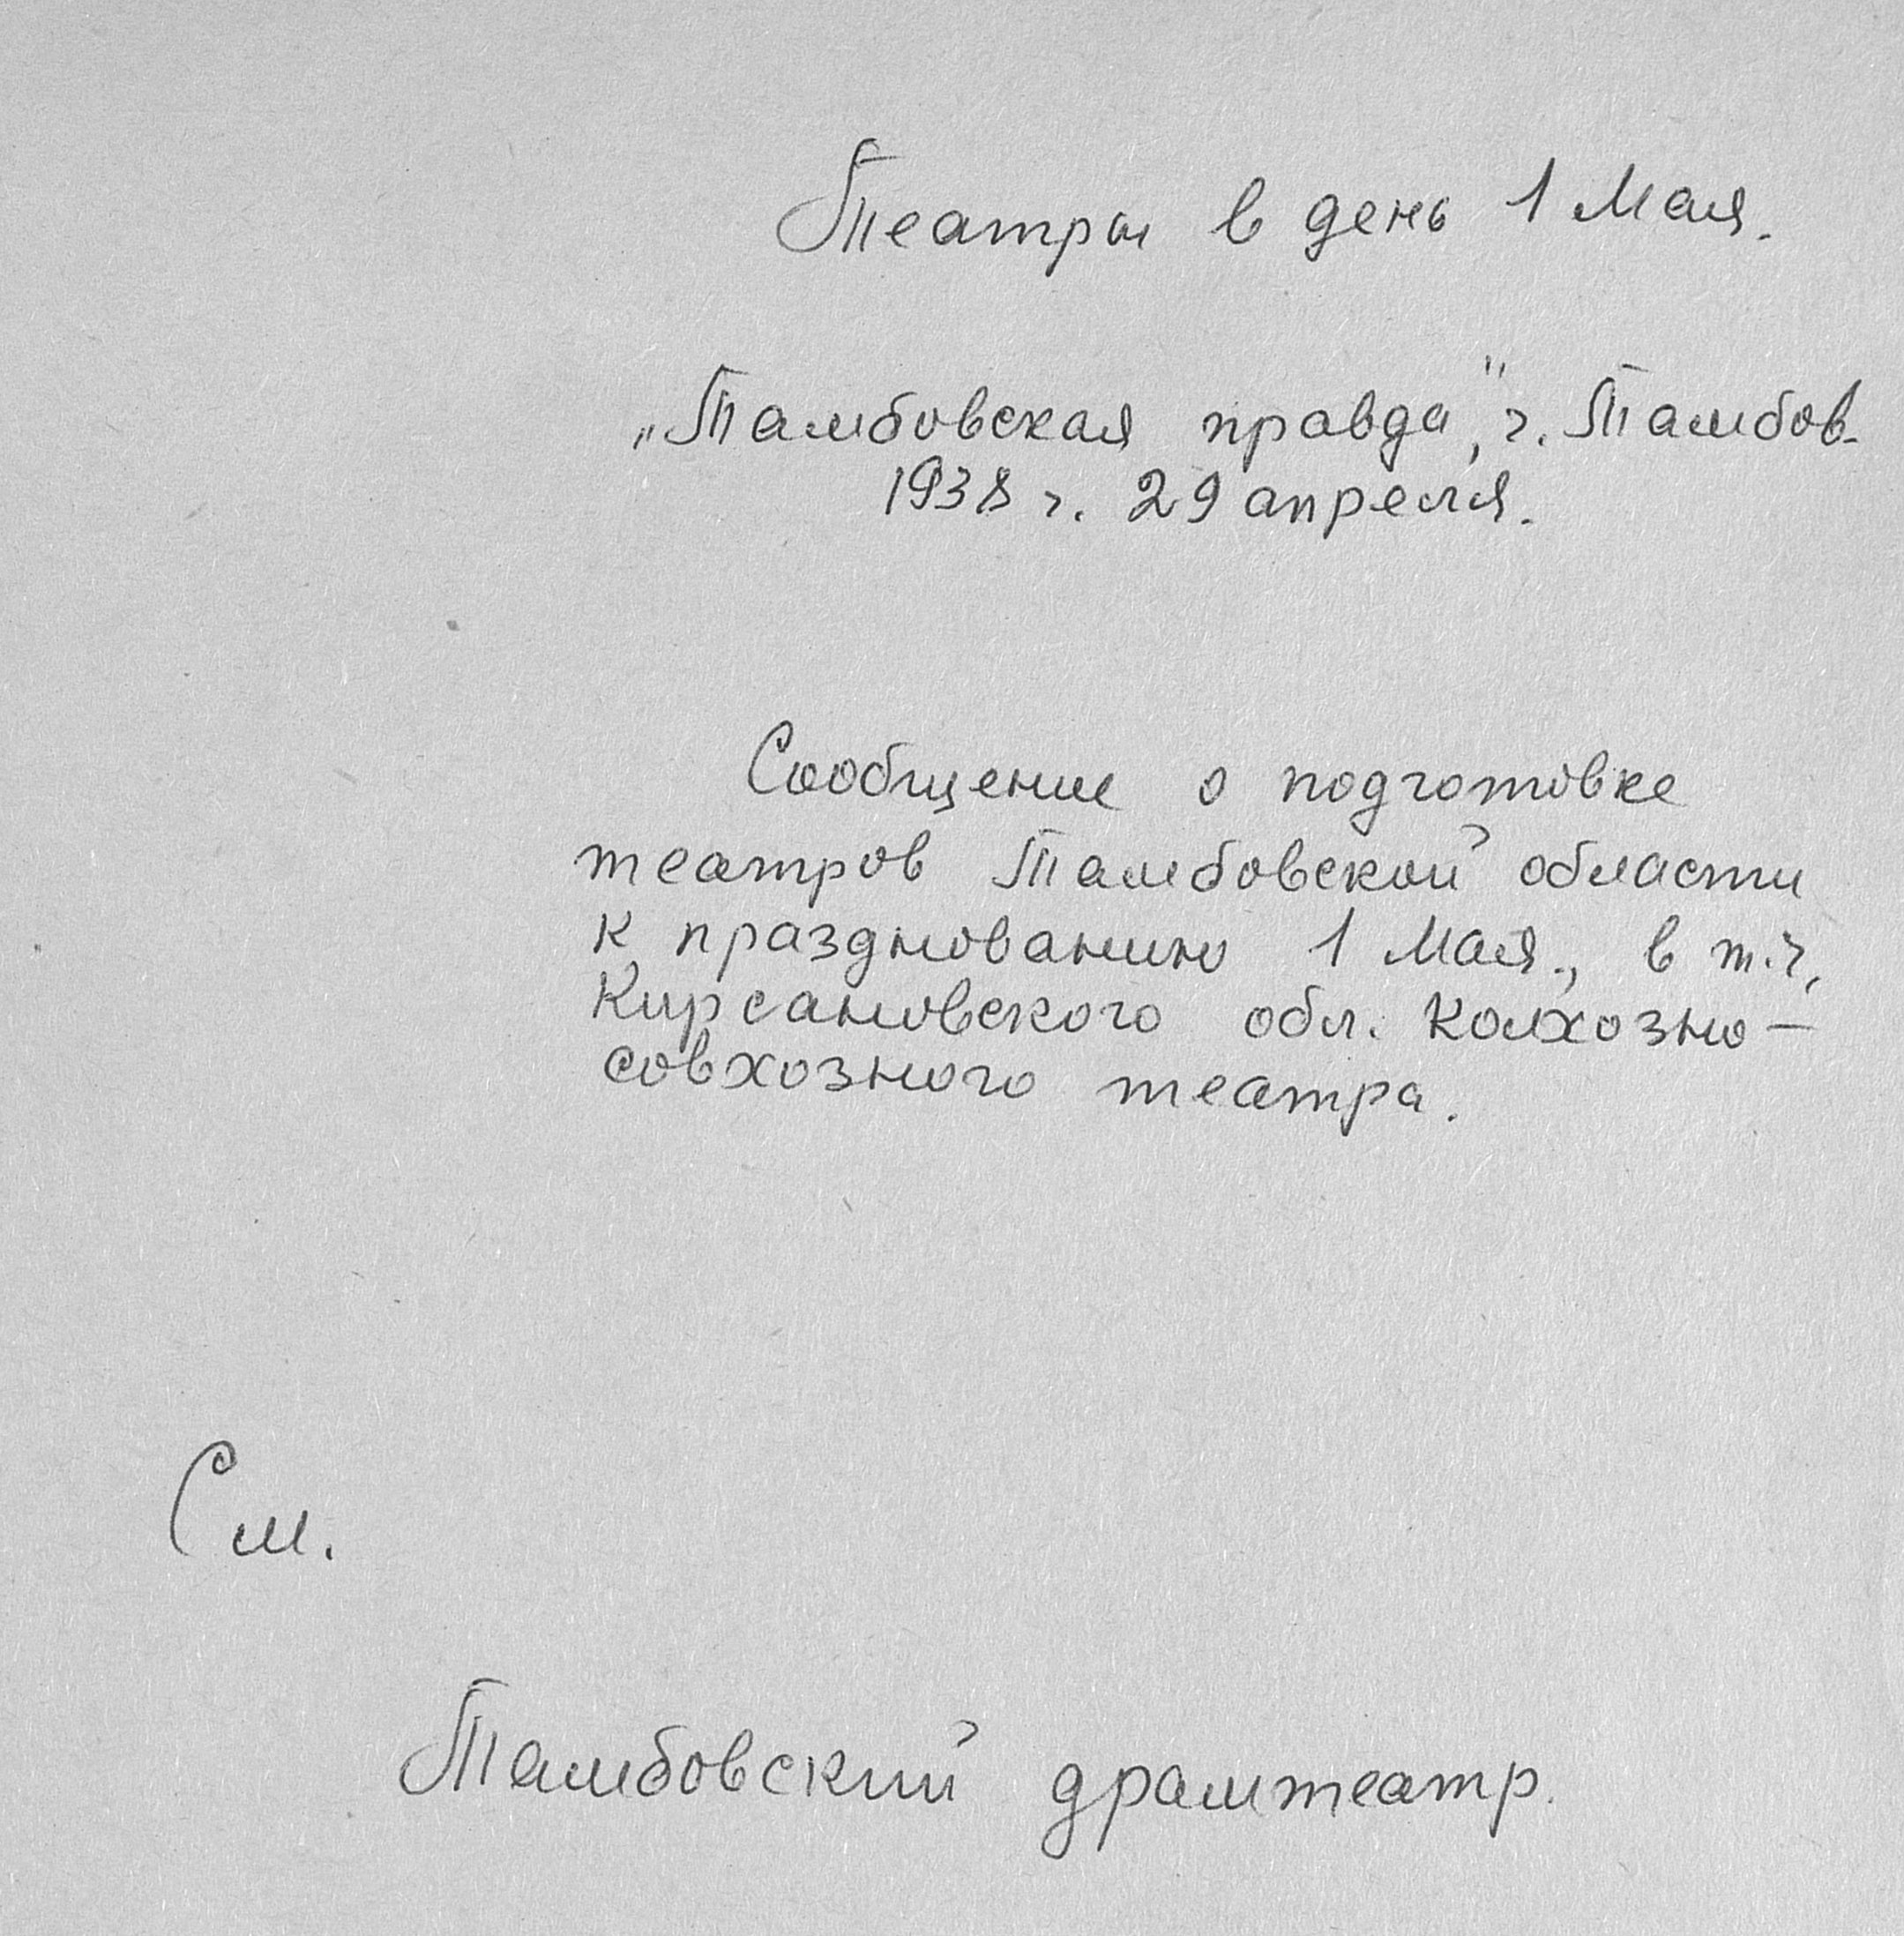 Театры в день 1 Мая.
„Тамбовская правда", г. Тамбов.
1938 г. 29 апреля.
Сообщение о подготовке
театров Тамбовской области
к празднованию 1 Мая., в т.ч.
Кирсановского обл. колхозно-
совхозного театра.
См.
Тамбовский драмтеатр.